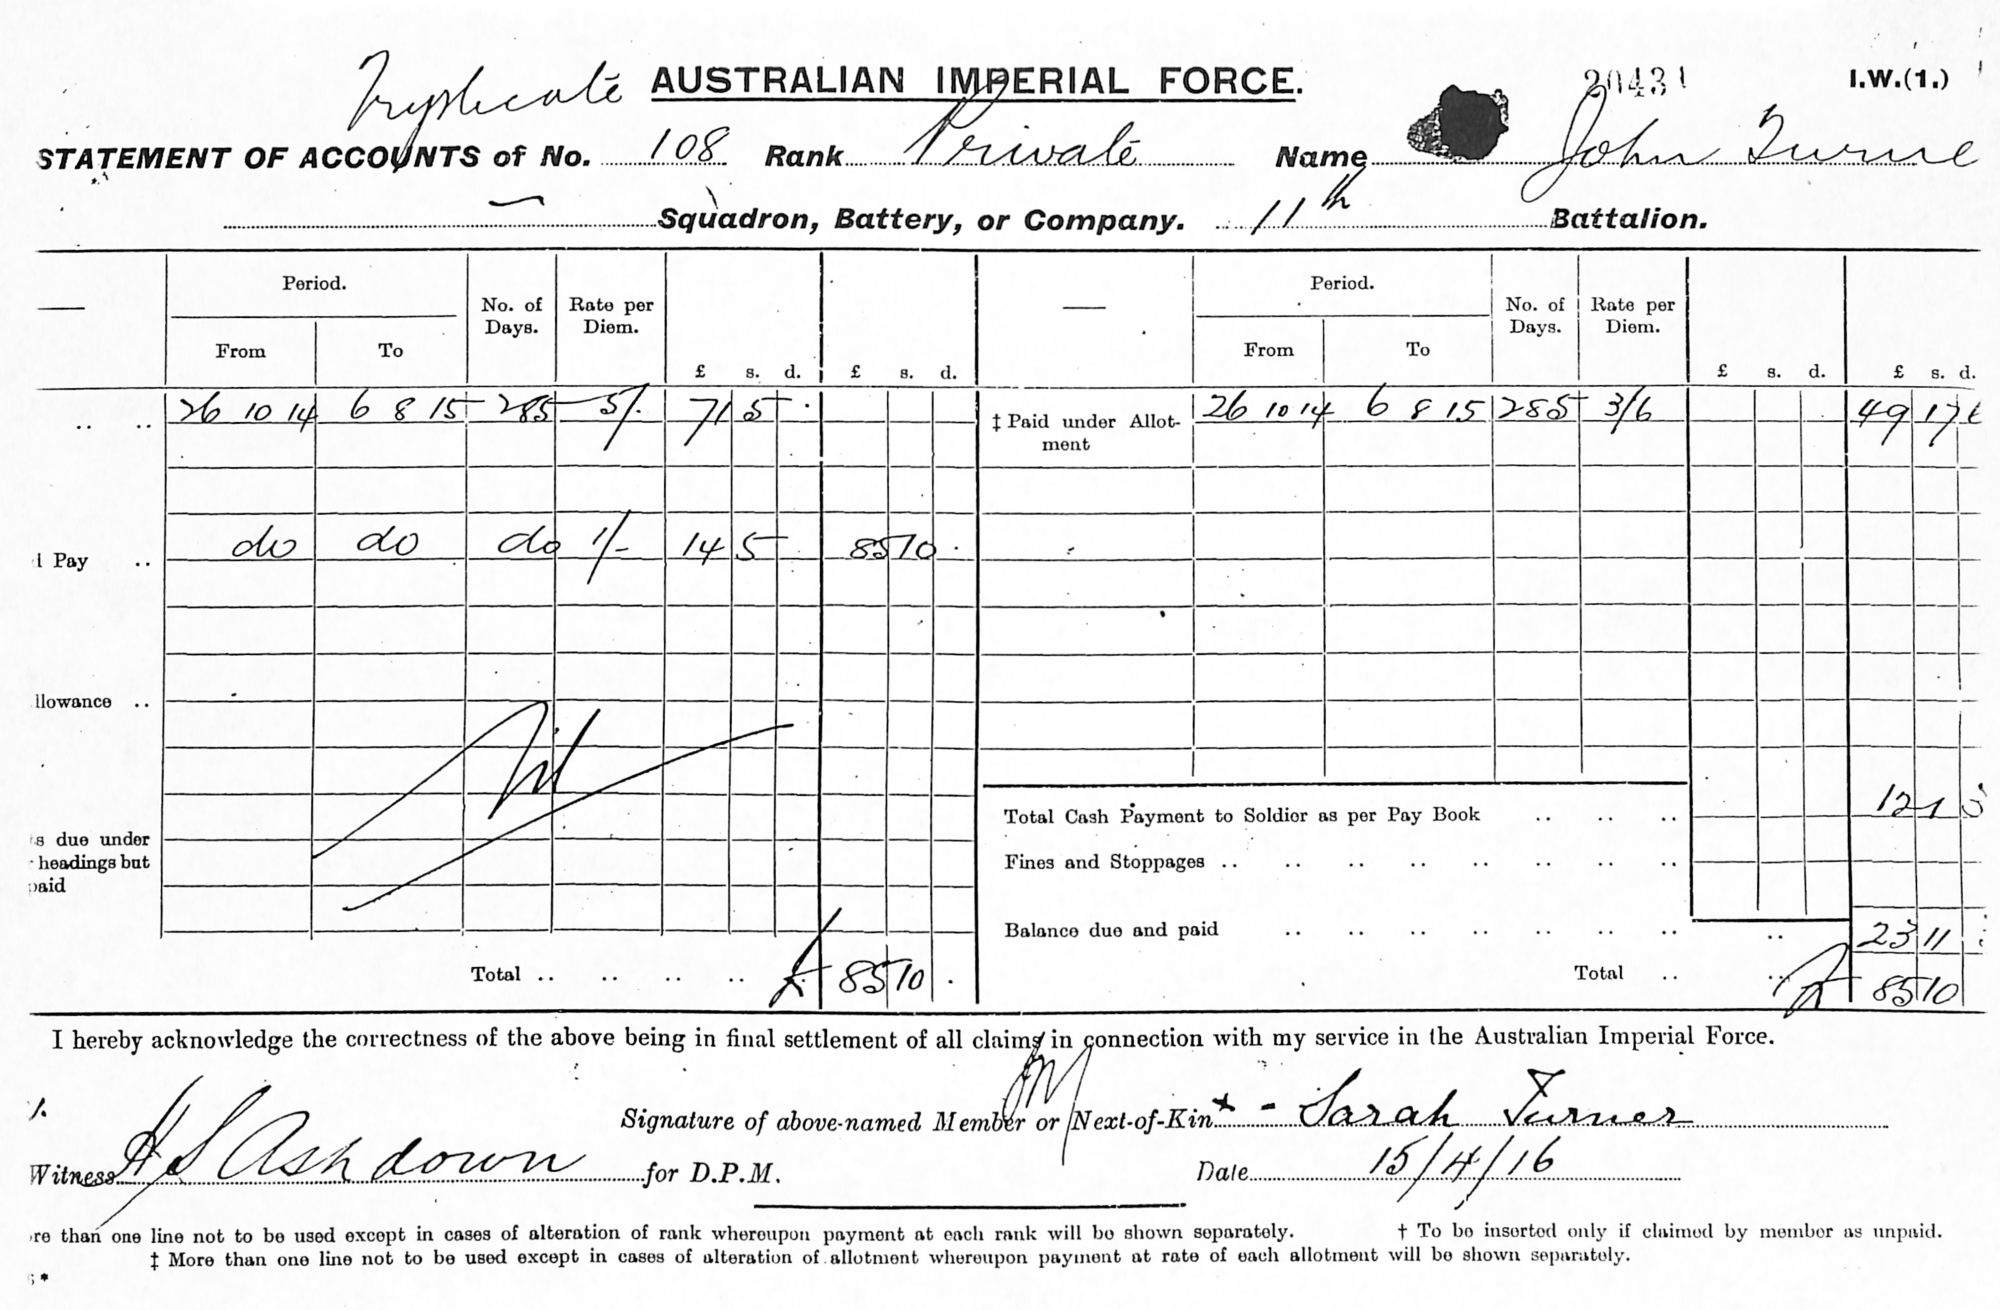 Tryplicate AUSTRALIAN IMPERIAL FORCE. 20431 I.W.(1.)
STATEMENT OF ACCOUNTS of No. 108 Rank Private Name John Turne
Squadron, Battery, or Company. 11th Battalion.
Period. No. of Days. Rate per Diem. Period. No. of Days. Rate per Diem.
From To £ s. d. £ s. d. From To £ s. d. £ s. d.
26 10 14 6 8 15 285 5/- 71 5 . ‡ Paid under Allotment 26 10 14 6 8 15 285 3/6 49 17 6
Pay .. do do do 1/- 14 5 85 10 .
llowance ..
Nil
s due under
headings but
paid
Total Cash Payment to Soldier as per Pay Book .. .. .. 12 1
Fines and Stoppages .. .. .. .. .. .. .. ..
Balance due and paid .. .. .. .. .. .. .. .. 23 11
Total .. .. .. .. £ 85 10 . Total .. .. £ 85 10
I hereby acknowledge the correctness of the above being in final settlement of all claims in connection with my service in the Australian Imperial Force.
Signature of above-named Member or Next-of-Kin - Sarah Turner
Witness H S Ashdown for D.P.M. Date 15/4/16
re than one line not to be used except in cases of alteration of rank whereupon payment at each rank will be shown separately. † To be inserted only if claimed by member as unpaid.
‡ More than one line not to be used except in cases of alteration of allotment whereupon payment at rate of each allotment will be shown separately.